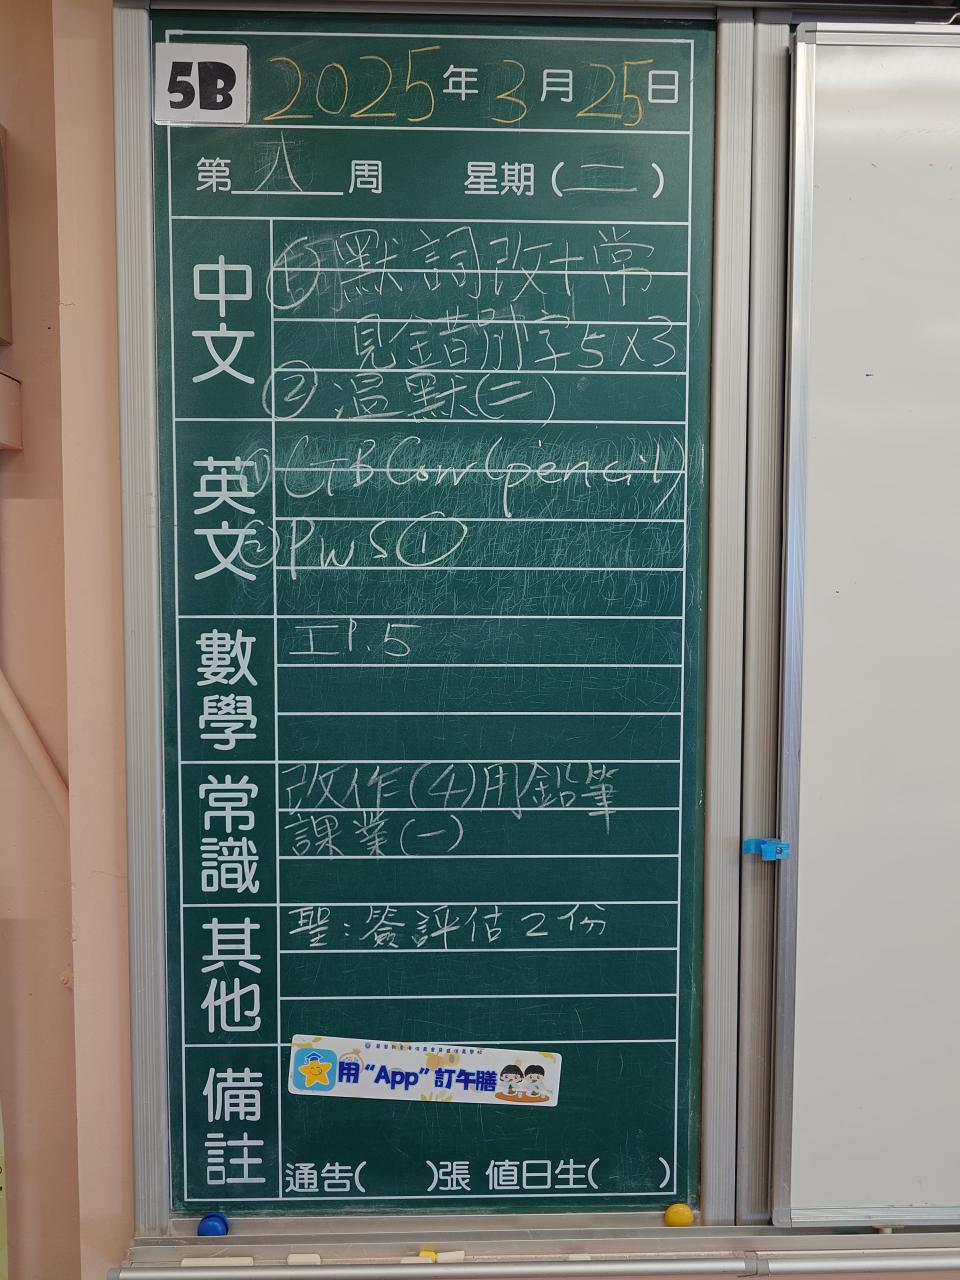 5B 2025年3月25日
第八周 星期(二)
中文
① 默詞改+常
見錯別字5×3
② 溫默(二)
英文
① GTB Corr (pencil)
② PWS①
數學
工P.5
常識
改作(4)用鉛筆
課業(一)
其他
聖:簽評估2份
備註
用“App”訂午膳
通告( )張 值日生( )